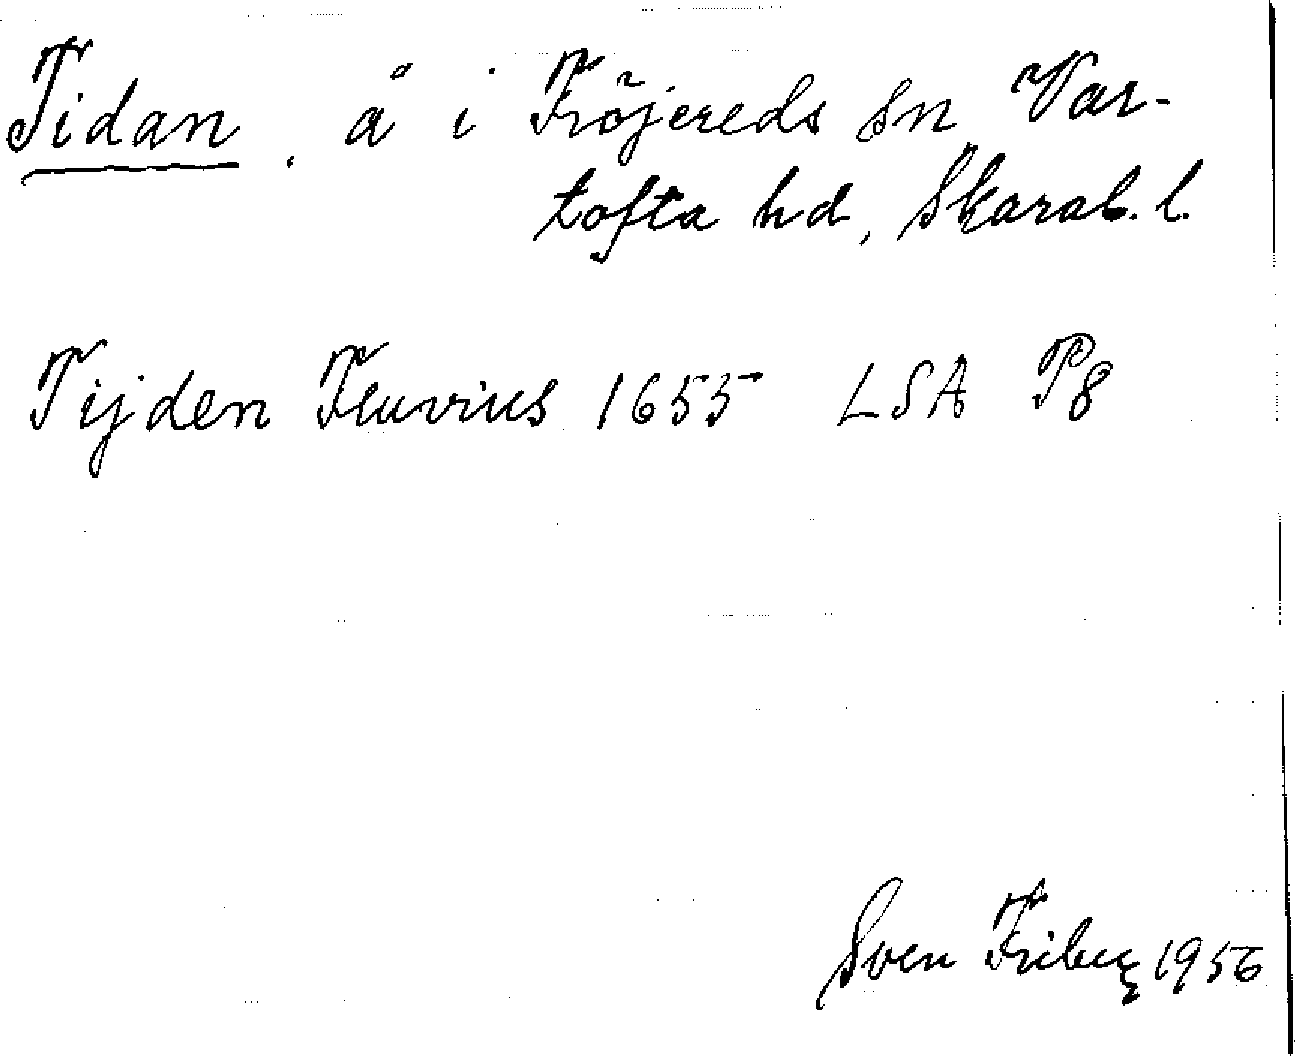 Tidan, å i Fröjereds sn Var-
tofta hd, Skarab. l.
Tijden Fluvius 1655 LSA P8
Sven Friberg 1956